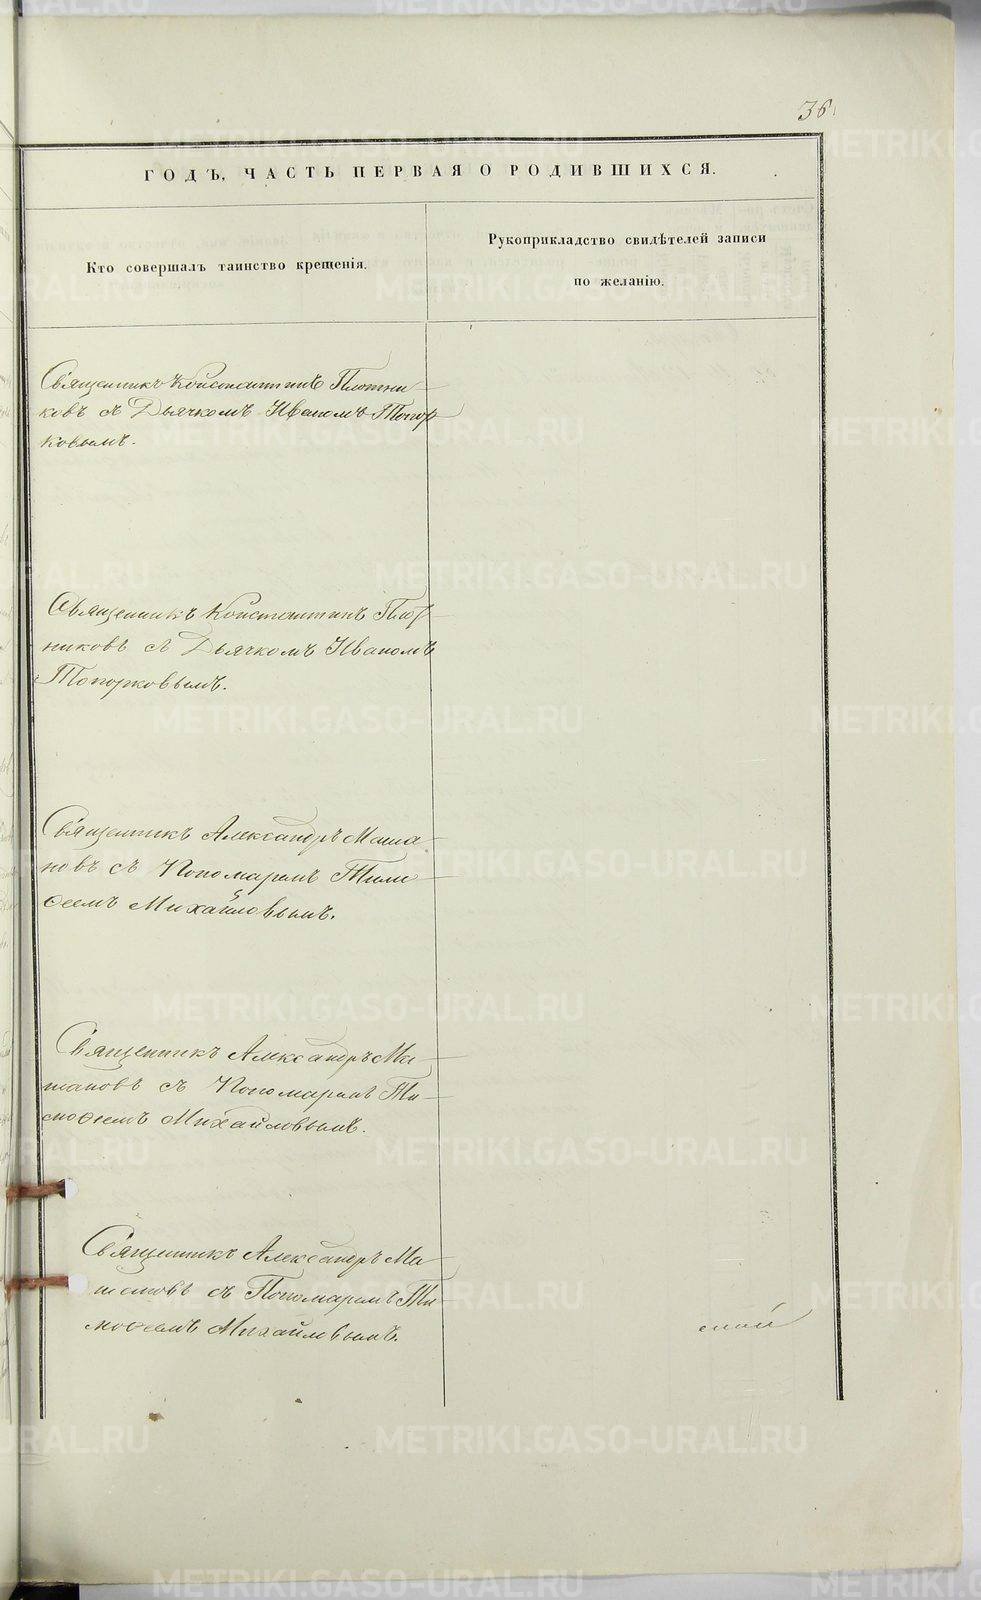 36.
ГОДЪ, ЧАСТЬ ПЕРВАЯ О РОДИВШИХСЯ.
Кто совершалъ таинство крещенія.
Рукоприкладство свидѣтелей записи
по желанію.
Священникъ Константинъ Плотни-
ковъ съ Дьячкомъ Иваномъ Топор-
ковымъ.
Священникъ Константинъ Плот-
никовъ съ Дьячкомъ Иваномъ
Топорковымъ.
Священникъ Александръ Маша-
новъ съ Пономаремъ Тимо-
ѳеемъ Михайловымъ.
Священникъ Александръ Ма-
шановъ съ Пономаремъ Ти-
моѳеемъ Михайловымъ.
Священникъ Александръ Ма-
шановъ съ Пономаремъ Ти-
моѳеемъ Михайловымъ.
METRIKI.GASO-URAL.RU